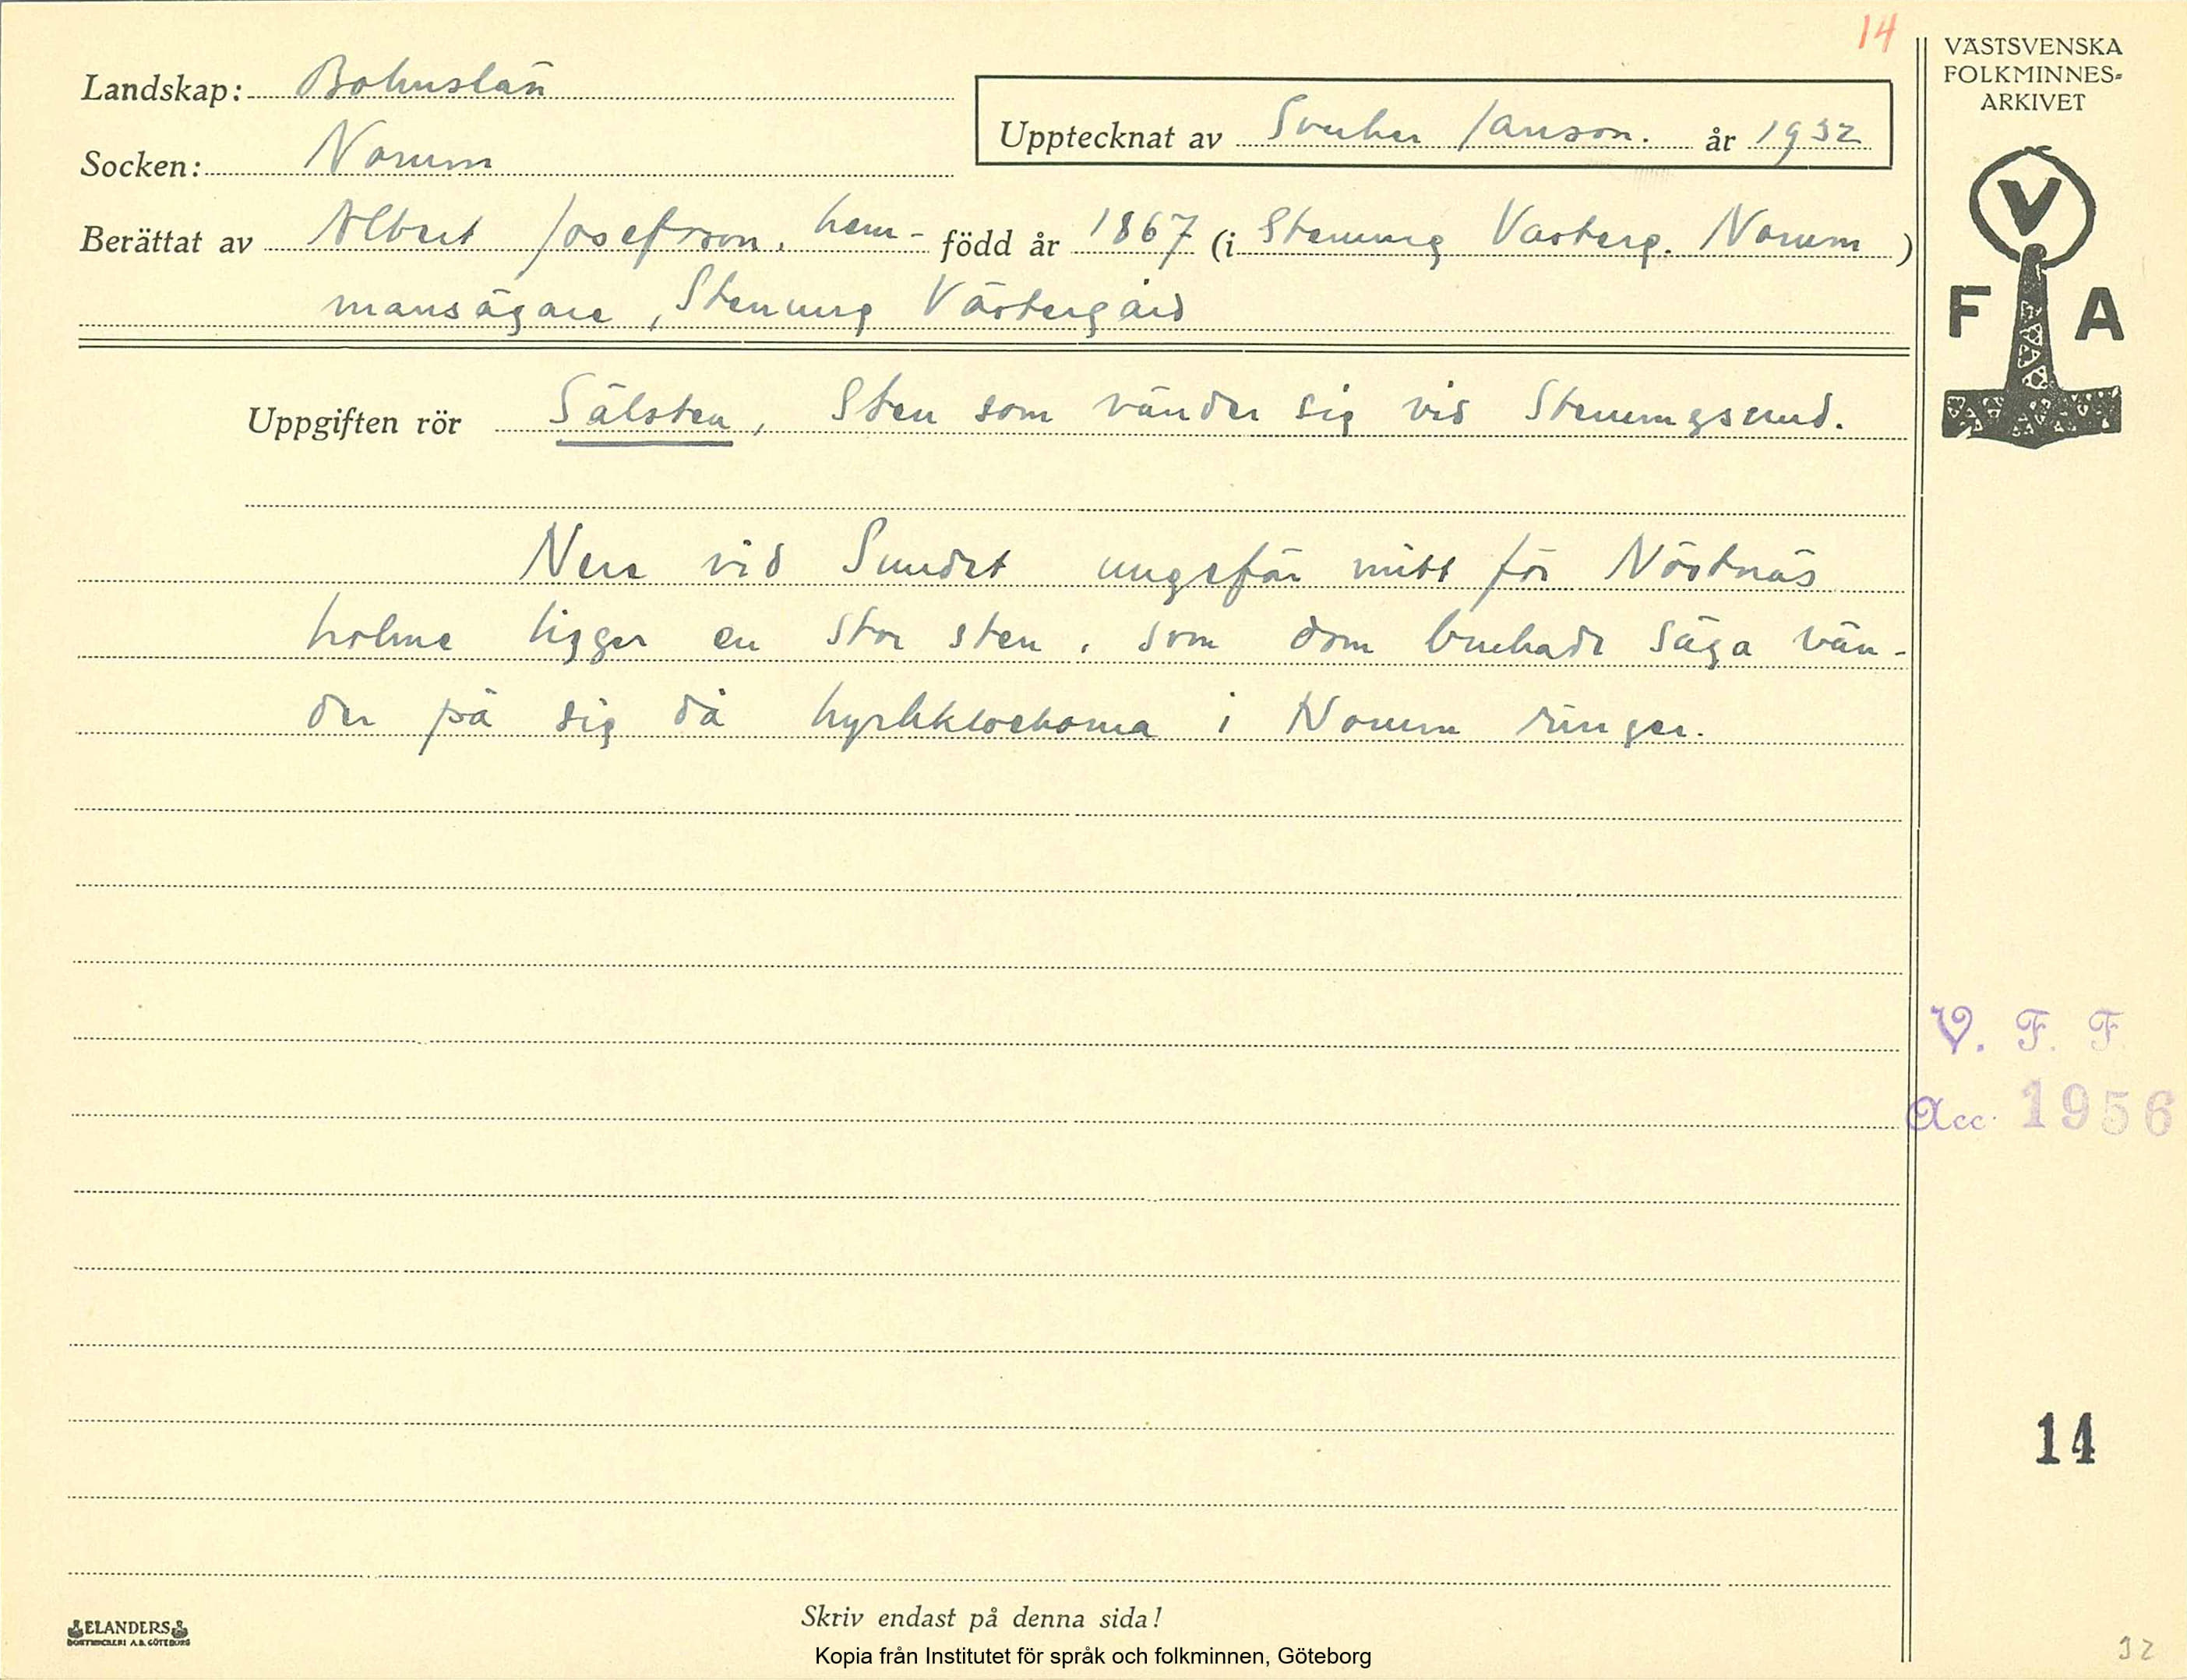 14
VÄSTSVENSKA
FOLKMINNES-
ARKIVET
Landskap: Bohuslän
Upptecknat av Sverker Janson. år 1932
Socken: Norum
Berättat av Albert Josefsson, hem- född år 1867 (i Stenung Västerg. Norum)
mansägare, Stenung Västergård
V
F A
Uppgiften rör Sälsten, Sten som vänder sig vid Stenungsund.
Nere vid Sundet ungefär mitt för Nöstnäs
holme ligger en stor sten, som dom brukade säga vän-
der på sig då kyrkklockorna i Norum ringer.
V. F. F.
Acc. 1956
14
Skriv endast på denna sida!
ELANDERS
BOKTRYCKERI A.B. GÖTEBORG
Kopia från Institutet för språk och folkminnen, Göteborg
32